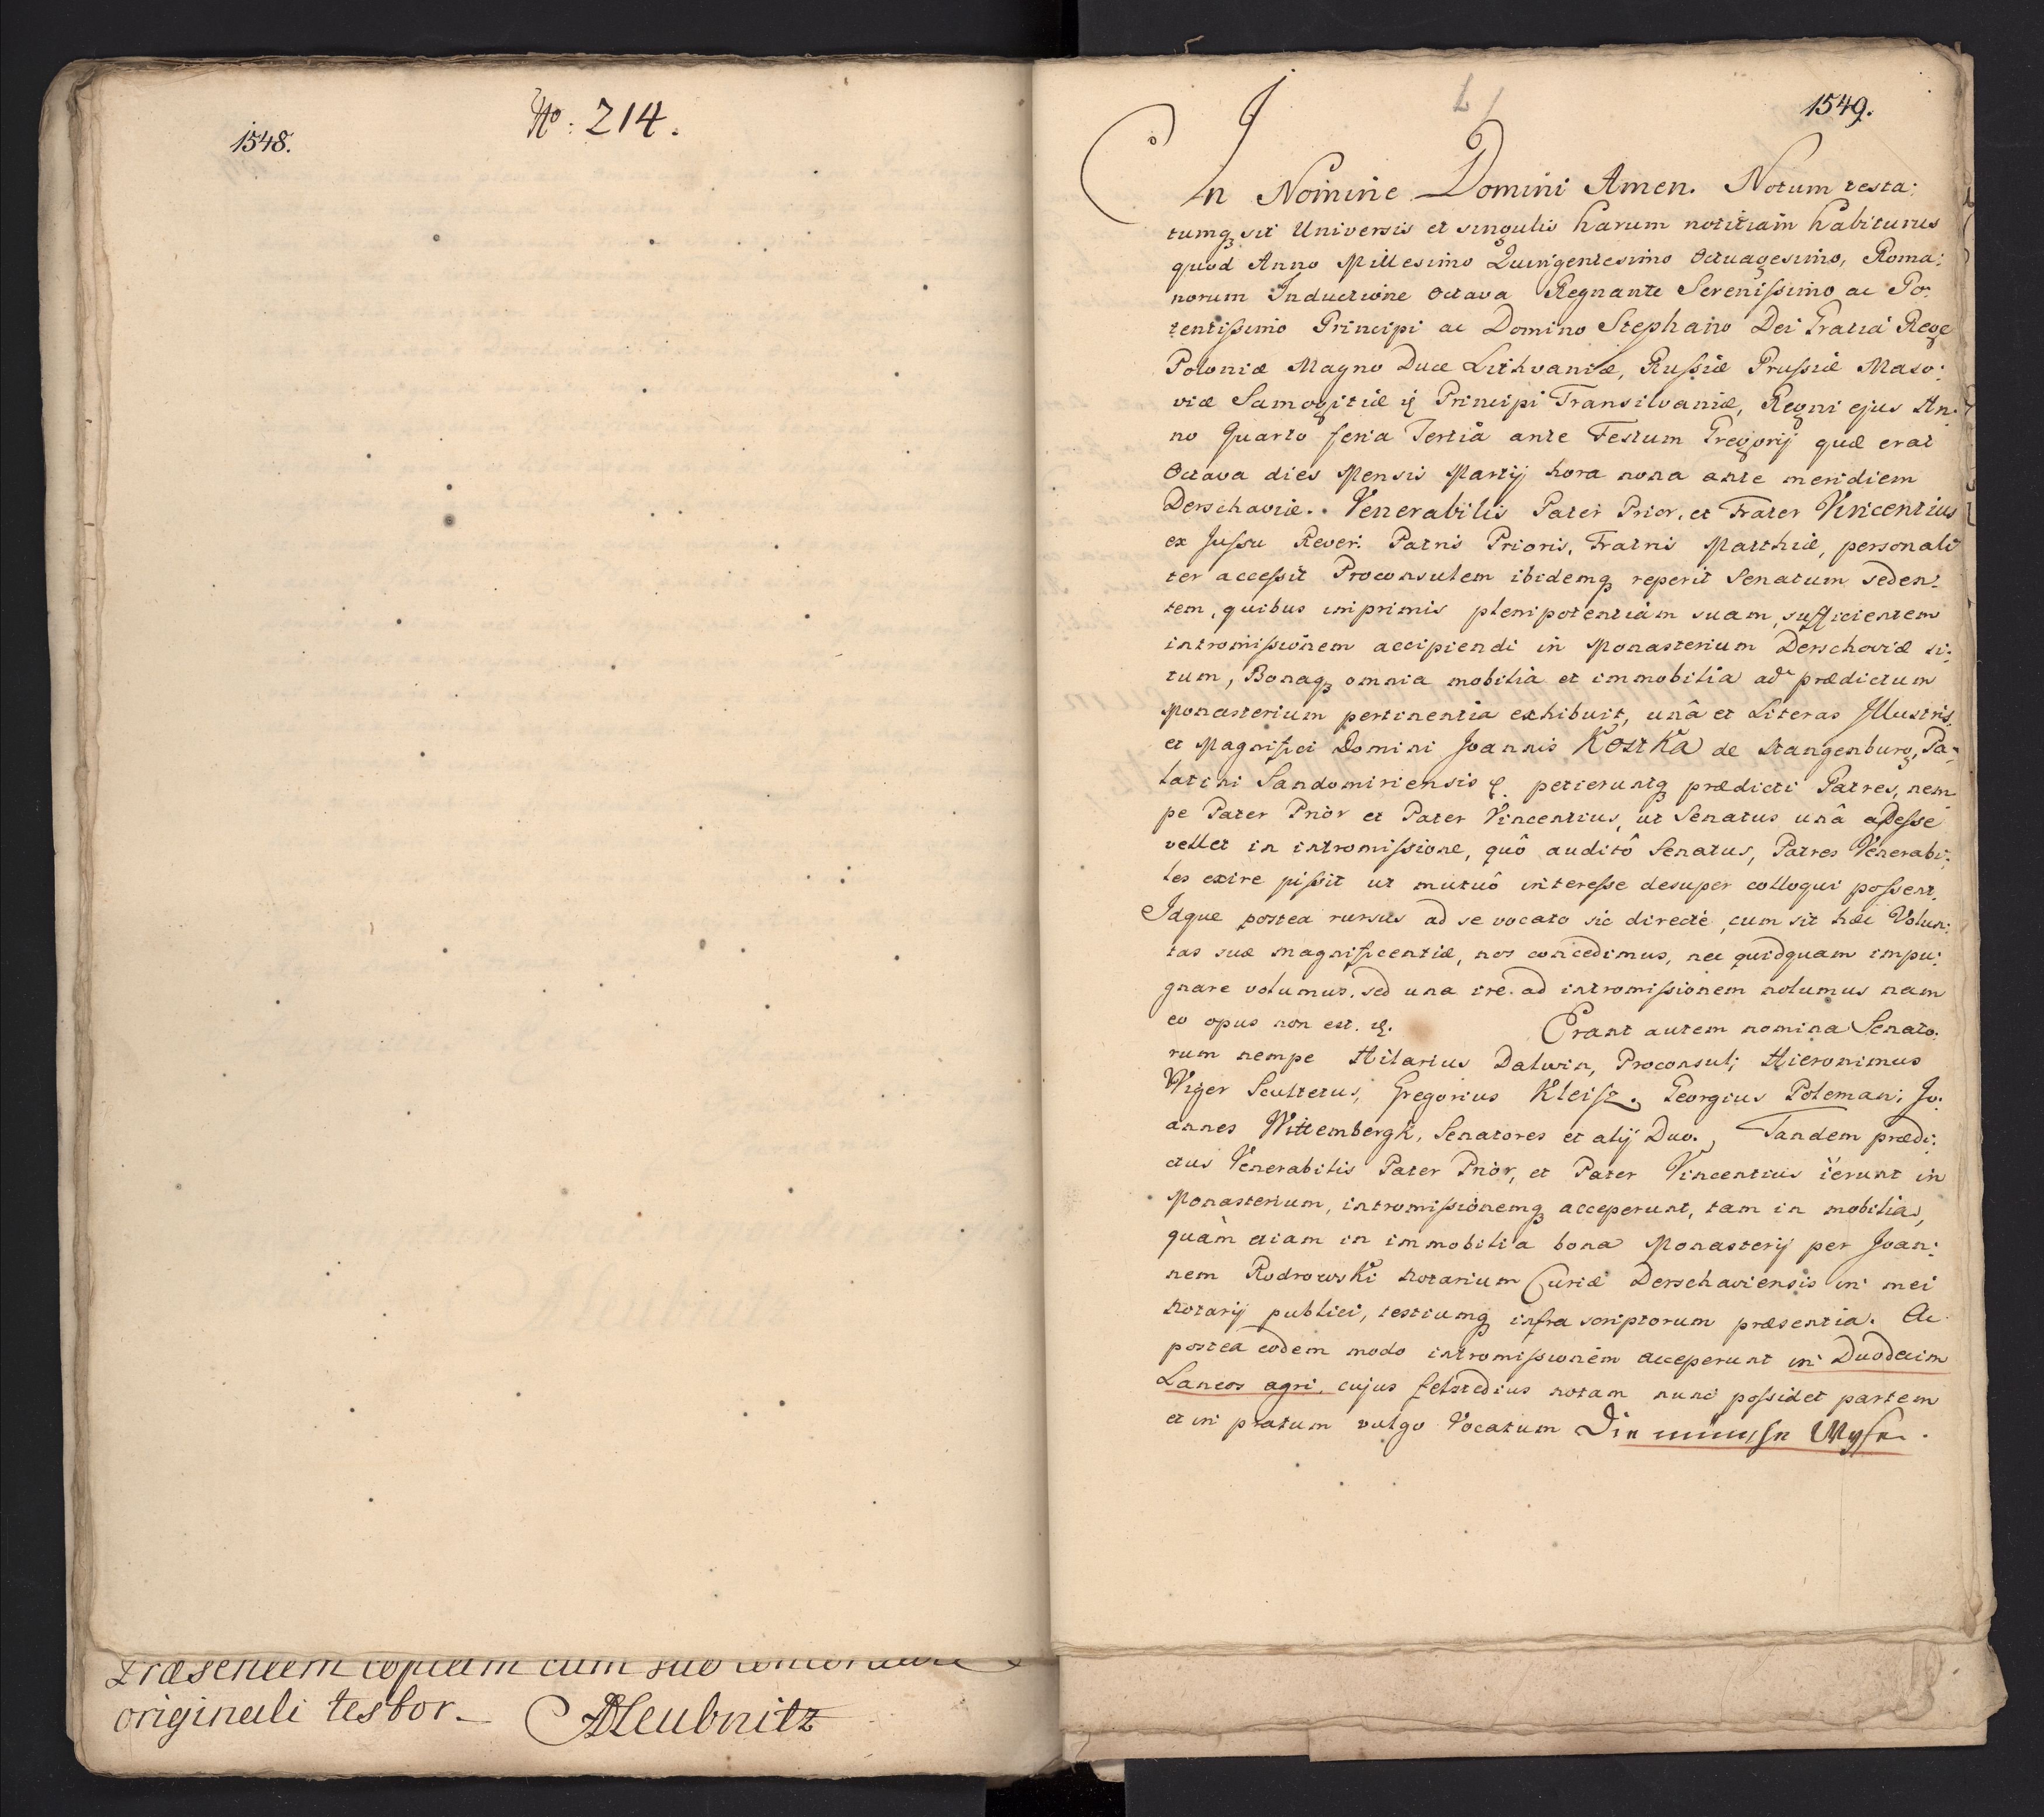 1548.
No: 214.
Præsentem copiam cum suo
originali testor.
1549.
In Nomine Domini Amen. Notum testa:
tumq sit Universis et singulis harum notitiam habituris
quod Anno Millesimo Quingentesimo Octuagesimo, Roma:
norum Inductione Octava Regnante Serenissimo ac Po:
tentissimo Principi ac Domino Stephano Dei Gratiâ Rege
Poloniæ Magno Duce Lithvaniæ, Russiæ Prussiæ Maso:
viæ Samogitiæ Principi Transilvaniæ, Regni ejus An:
no Quarto feria Tertia ante Festum Gregorij quæ erat
Octava dies Mensis Martij hora nona ante meridiem
Derschaviæ. Venerabilis Pater Prior, et Frater Vincentius
ex Jussu Rever: Patris Prioris, Fratris Matthiæ, personali
ter accessit Proconsulem ibidemq reperit Senatum seden:
tem, quibus inprimis plenipotentiam suam, sufficientem
intromissionem accipiendi in Monasterium Derschoviæ si:
tum, Bonaq omnia mobilia et immobilia ad prædictum
Monasterium pertinentia exhibuit, unâ et Literas Illustris.
et Magnifici Domini Joannis Kostka de Stangenburg, Pa:
latini Sandomiriensis petieruntq prædicti Patres, nem:
pe Pater Prior et Pater Vincentius, ut Senatus unâ adesse
vellet in intromissione, quô auditô Senatus, Patres Venerabi:
les exire pissit ut mutuô interesse desuper colloqui possent.
Idque postea rursus ad se vocato sic directè, cum sit hæc Volun:
tas suæ magnificentiæ, nos concedimus, nec quidquam impu:
gnare volumus. sed una ire ad intromissionem nolumus nam
eo opus non est. Erant autem nomina Senato:
rum nempe Hilarius Daluin, Proconsul; Hieronimus
Wiger Scultetus, Gregorius Kleisz. Georgius Poleman; Jo:
annes Wittembergk, Senatores et alij Duo., Tandem prædi:
ctus Venerabilis Pater Prior, et Pater Vincentius ierunt in
Monasterium, intromissionemq acceperunt, tam in mobilia,
quàm etiam in immobilia bona Monasterij per Joan:
nem Rodrowski Notarium Curiæ Derschaviensis in mei
Notarij publici, testiumq infra scriptorum præsentia. Ac
postea eodem modo intromissionem acceperunt in Duodecim
Laneos agri, cujus notam nunc possidet partem
et in pratum vulgo Vocatum Die Wyse.